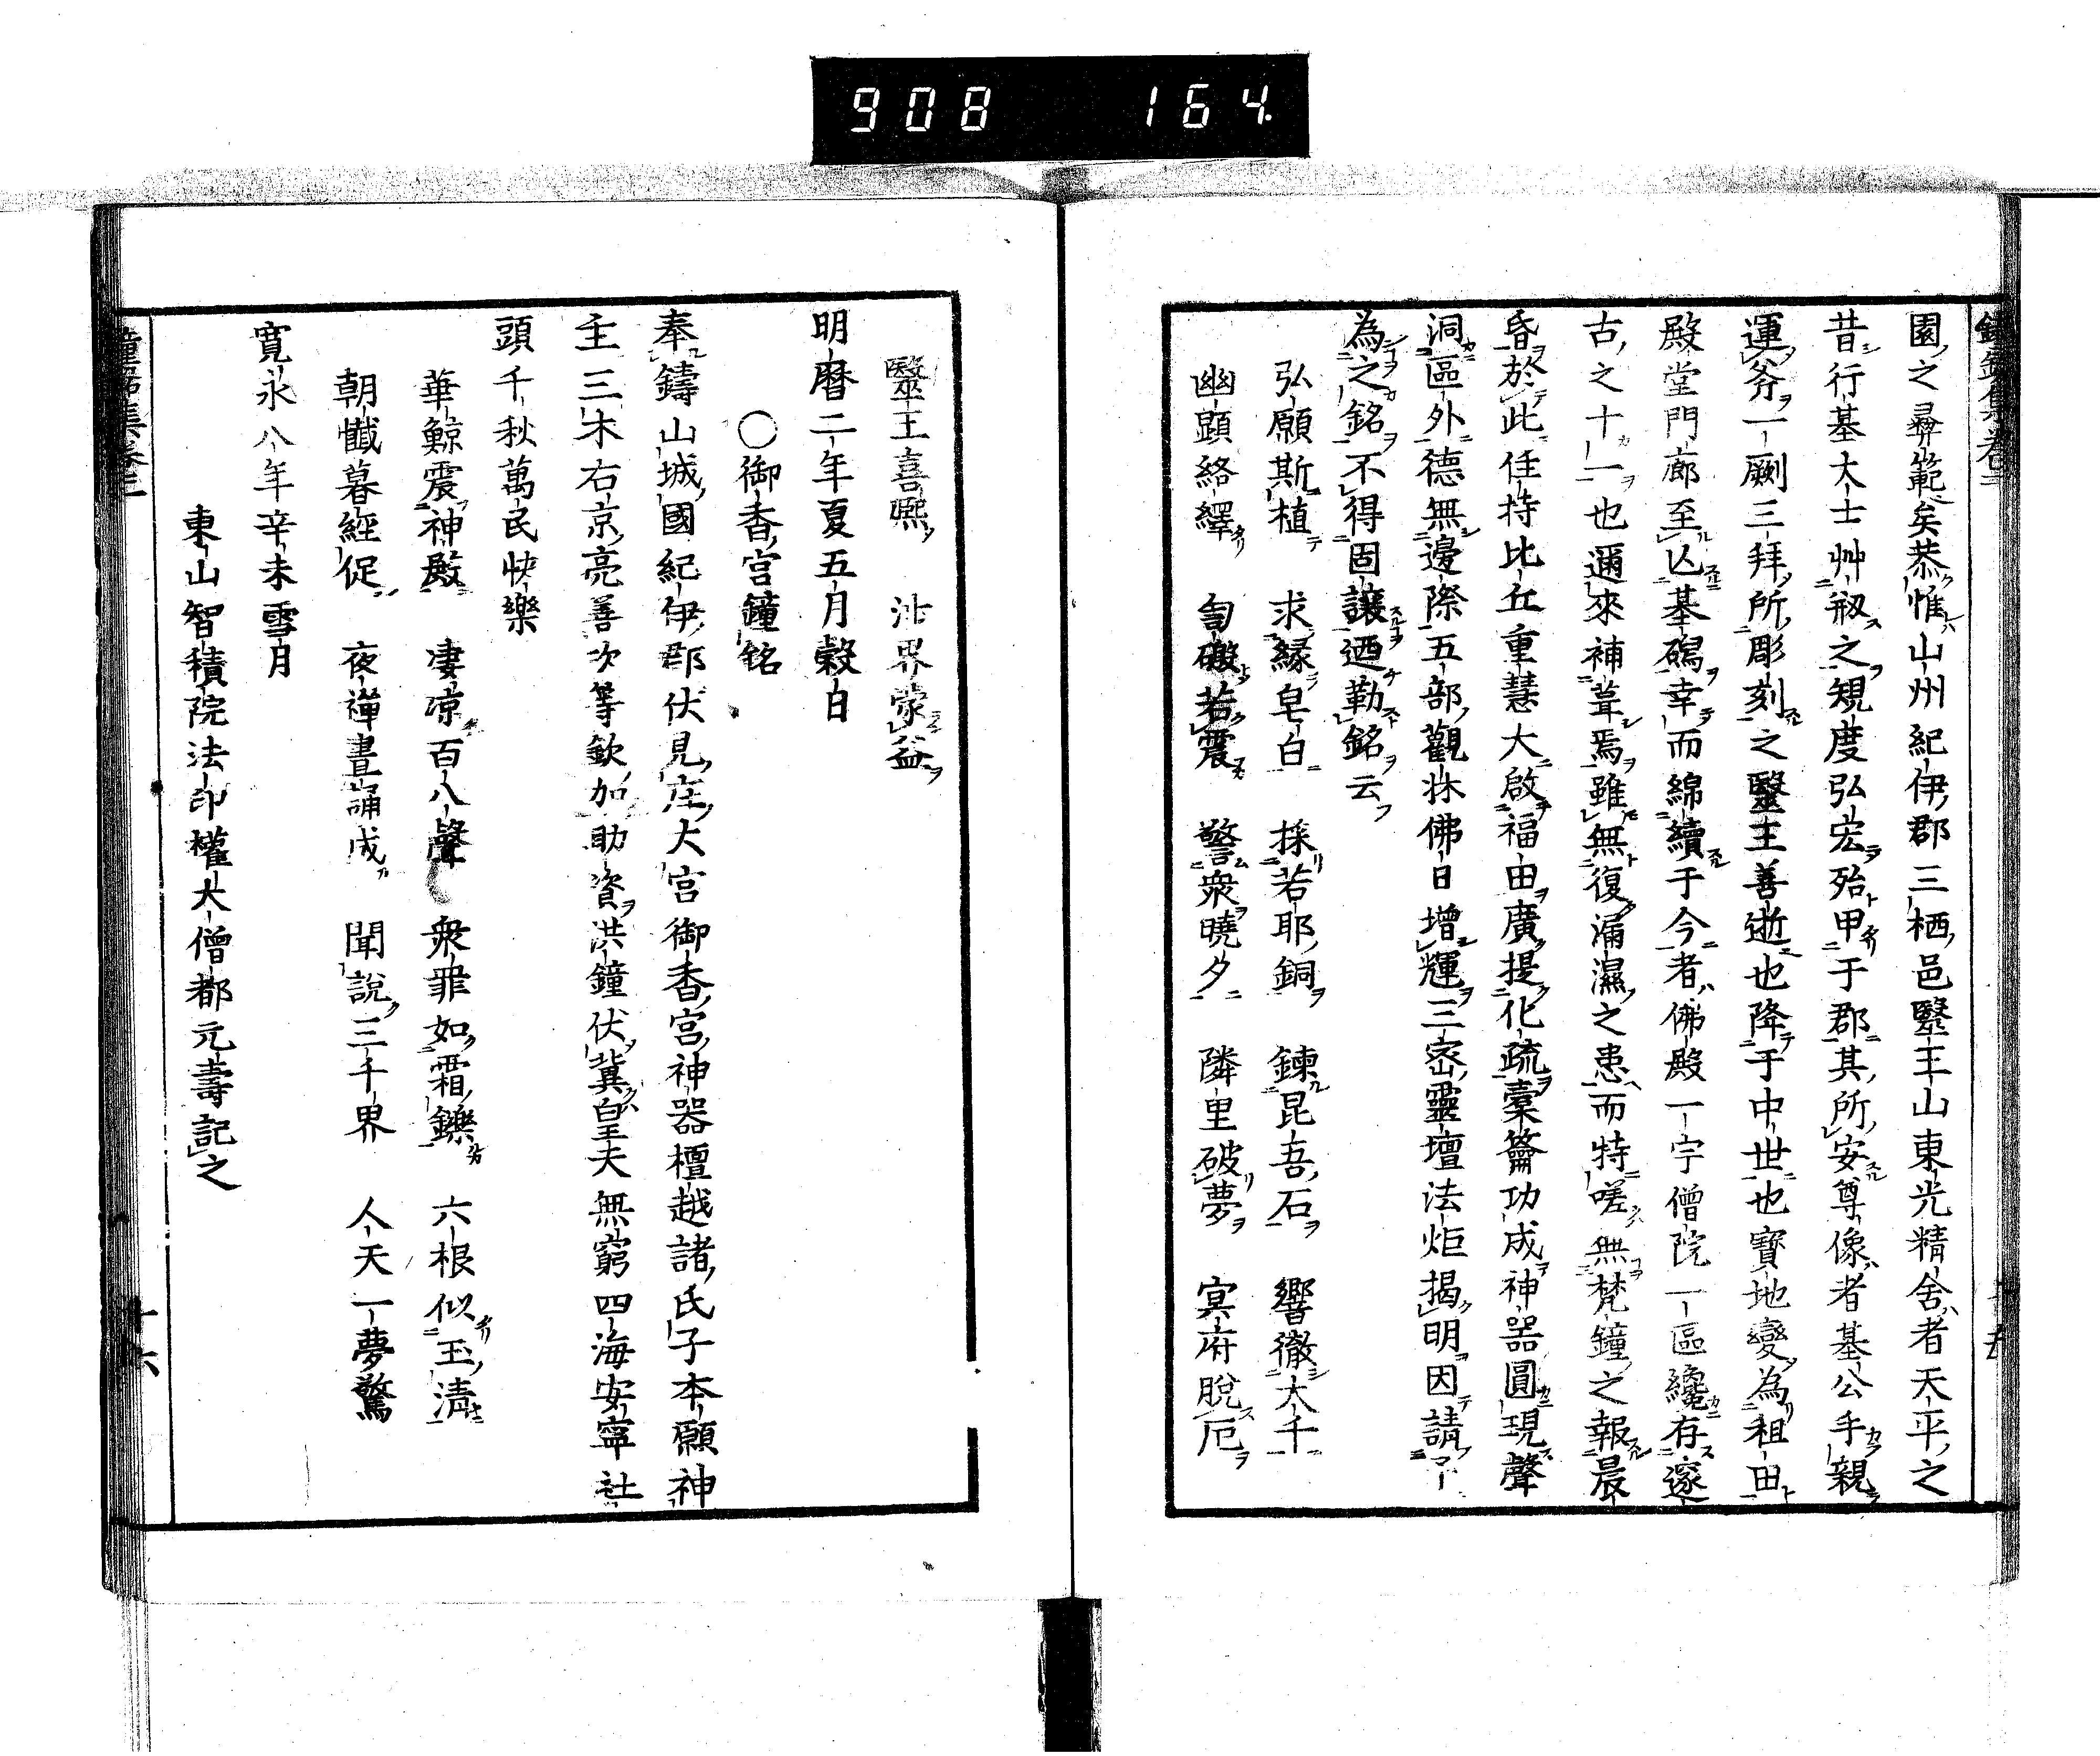 908 164
園之彛範矣恭惟山州紀伊郡三栖邑毉王山東光精舍者天平之
昔行基大士艸剏之規度弘宏殆甲于郡其所安尊像者基公手親
運斧一劂三拜所彫刻之毉王善逝也降于中世也寳地變為租田
殿堂門廊至亾基碣幸而綿續于今者佛殿一宇僧院一區纔存邃
古之十一也邇來補葺焉雖無復漏濕之患而特嗟無梵鐘之報晨
昏於此住持比丘重慧大啟福由廣提化疏橐籥功成神器圓現聲
洞區外德無邊際五部觀牀佛日增輝三宻靈壇法炬揭明因請予
為之銘不得固讓迺勒銘云
弘願斯植 求緣皂白 採若耶銅 鍊昆吾石 響徹大千
幽顕絡繹 訇礮若震 警衆曉夕 隣里破夢 㝠府脫厄
毉王喜熈 沙界蒙益
明暦二年夏五月穀白
○御香宮鐘銘
奉鑄山城國紀伊郡伏見庄大宮御香宮神器檀越諸氏子本願神
主三木右京亮善次等欽加助資洪鐘伏冀皇天無窮四海安寧社
頭千秋萬民快樂
華鯨震神殿 凄凉百八聲 衆罪如霜鑠 六根似玉淸
朝懺暮經促 夜禪晝誦成 聞說三千界 人天一夢驚
寛永八年辛未雪月
東山智積院法印權大僧都元壽記之
十六